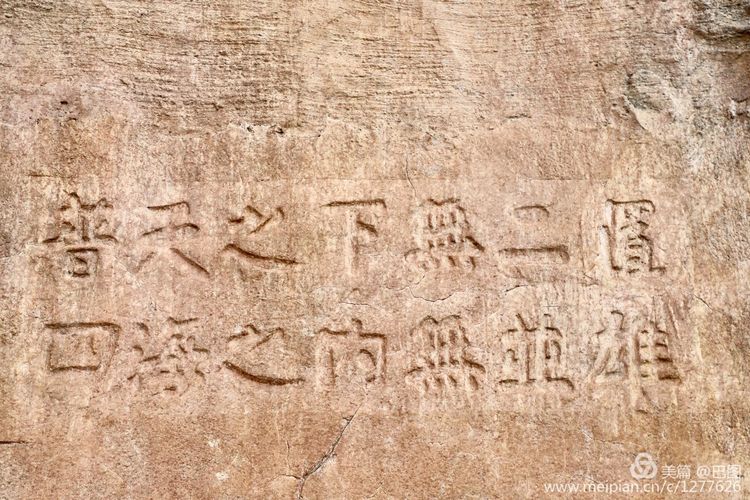 普天之下無二置
四海之内無並雄
美篇 @田图
www.meipian.cn/c/1277626